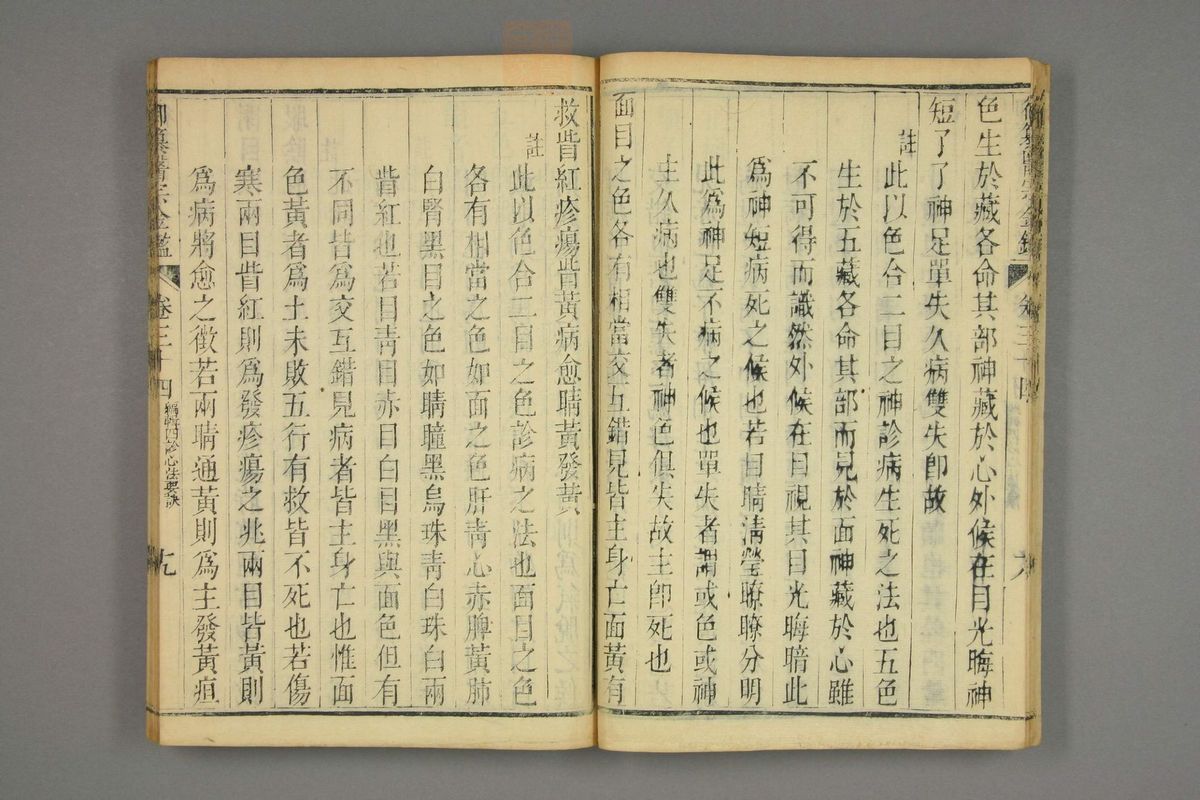 御纂醫宗金鑑 卷三十四 六
色生於藏各命其部神藏於心外候在目光晦神
短了了神足單失久病雙失即故
註
此以色合二目之神診病生死之法也五色
生於五藏各命其部而見於面神藏於心雖
不可得而識然外候在目視其目光晦暗此
爲神短病死之候也若目睛清瑩瞭瞭分明
此爲神足不病之候也單失者謂或色或神
主久病也雙失者神色俱失故主卽死也
面目之色各有相當交互錯見皆主身亡面黃有
救眥紅疹瘍眥黃病愈睛黃發黃
註
此以色合二目之色診病之法也面目之色
各有相當之色如面之色肝靑心赤脾黃肺
白腎黑目之色如睛瞳黑烏珠靑白珠白兩
眥紅也若目靑目赤目白目黑與面色但有
不同皆爲交互錯見病者皆主身亡也惟面
色黃者爲土未敗五行有救皆不死也若傷
寒兩目眥紅則爲發疹瘍之兆兩目眥黃則
爲病將愈之徵若兩睛通黃則爲主發黃疸
御纂醫宗金鑑 卷三十四 編輯四診心法要訣 九